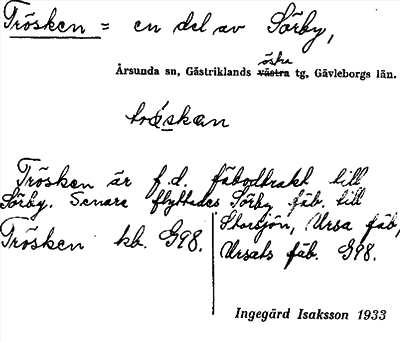 Trösken = en del av Sörby,
östra
Årsunda sn, Gästriklands västra tg, Gävleborgs län.
tröskan
Trösken är f.d. fäbodtrakt till
Sörby. Senare flyttades Sörby fäb. till
Storsjön, Ursa fäb,
Trösken kb. G98.
Ursats fäb. G98.
Ingegärd Isaksson 1933